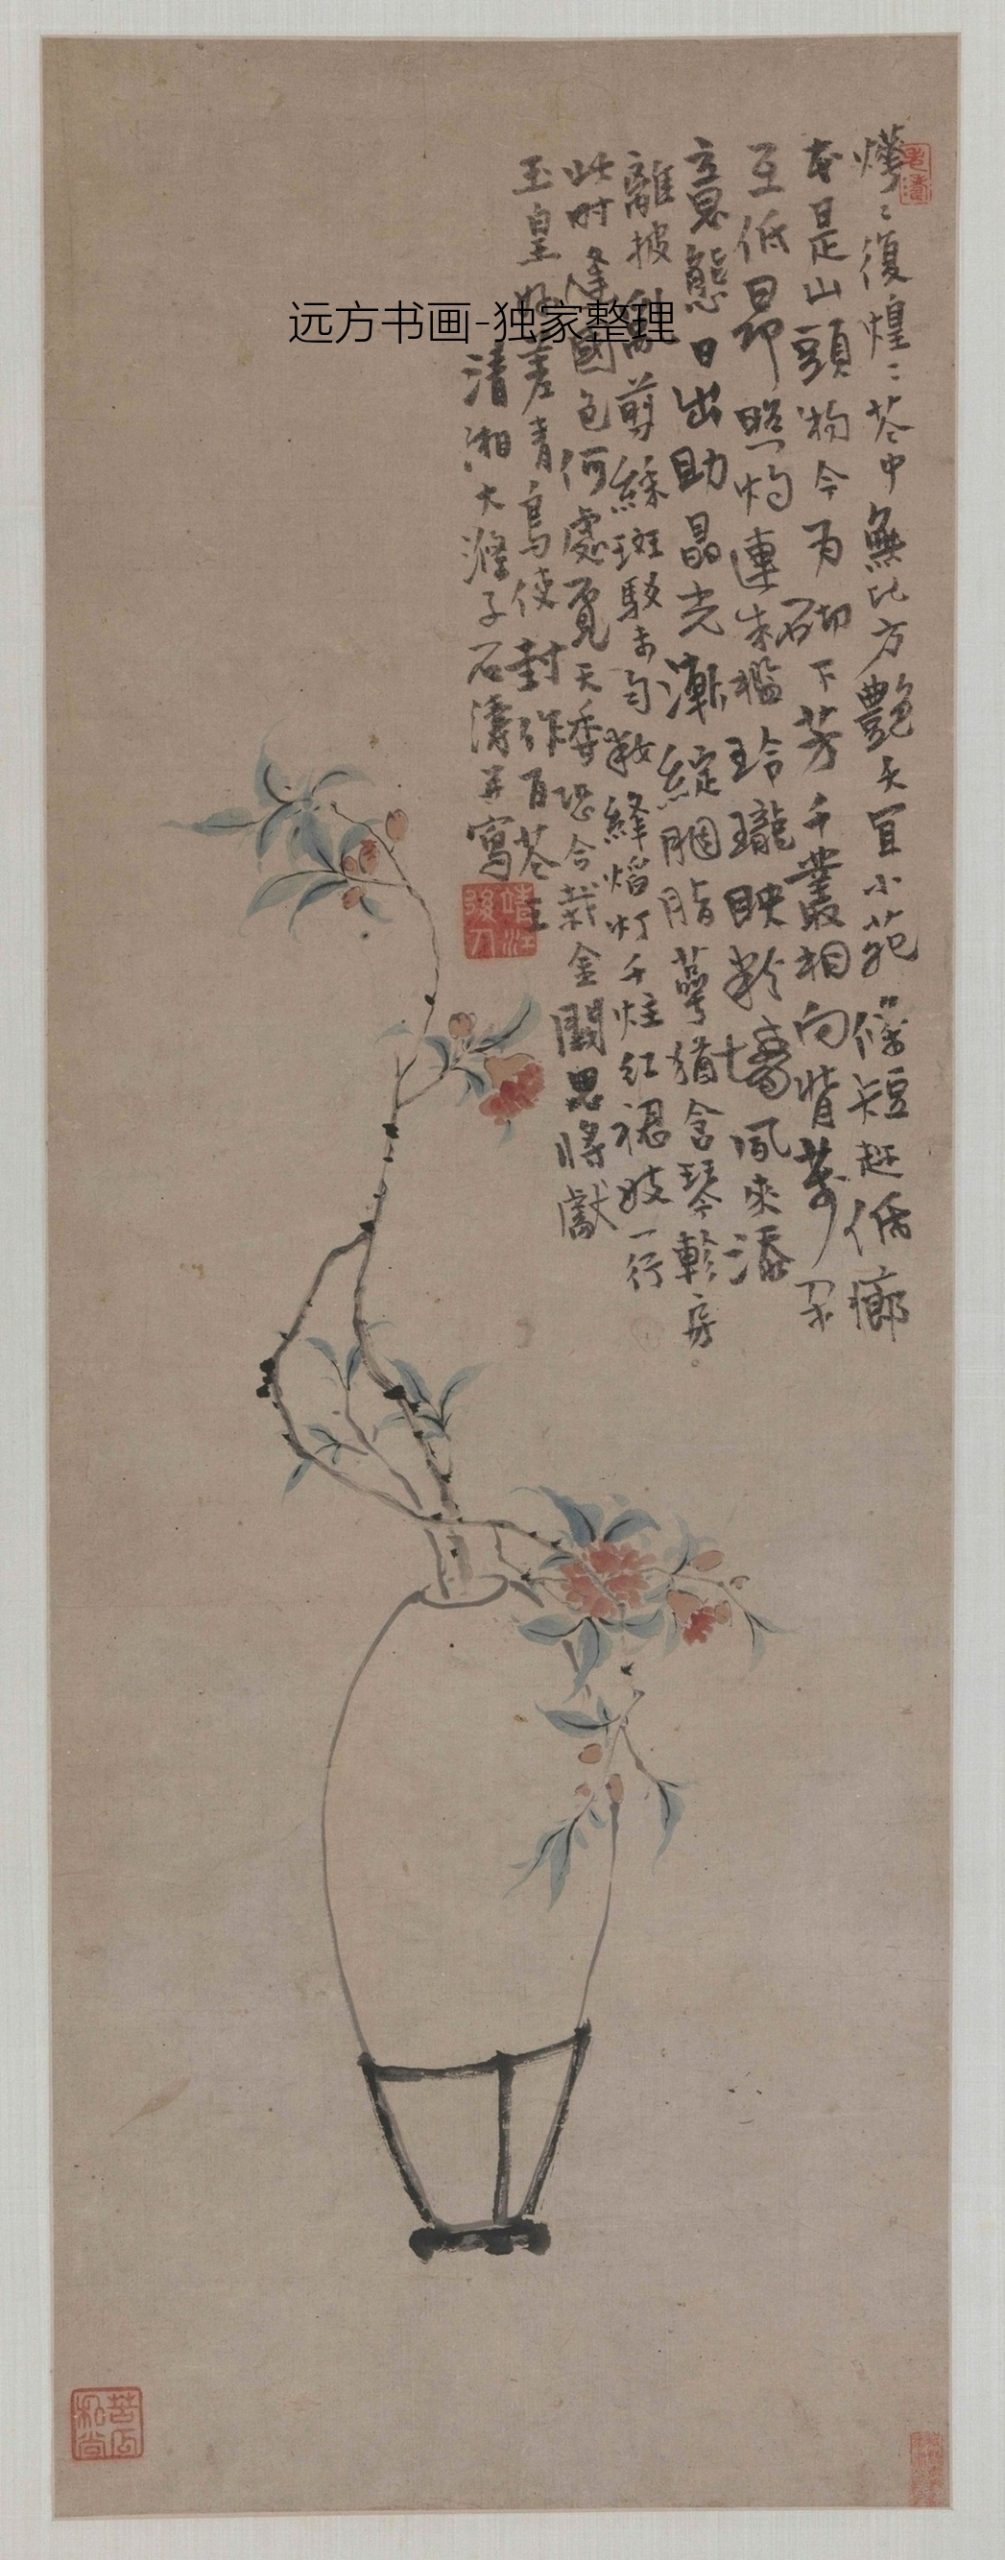 燁〻復煌〻花中無比方艷夭宜小苑條短趂低廊
本是山頭物今为砌下芳千叢相向背萬朵
互低昂照灼連朱檻玲瓏映粉墻風來添
意態日出助晶光漸綻胭脂萼猶含琴軫房
離披亂剪綵斑駁未勻妝絳焰灯千炷紅裙妓一行
此时逢國色何處覓天香恐合栽金闕思將獻
玉皇好差青鳥使封作百花王
清湘大滌子石濤并寫
靖江後人
苦瓜和尚
远方书画-独家整理